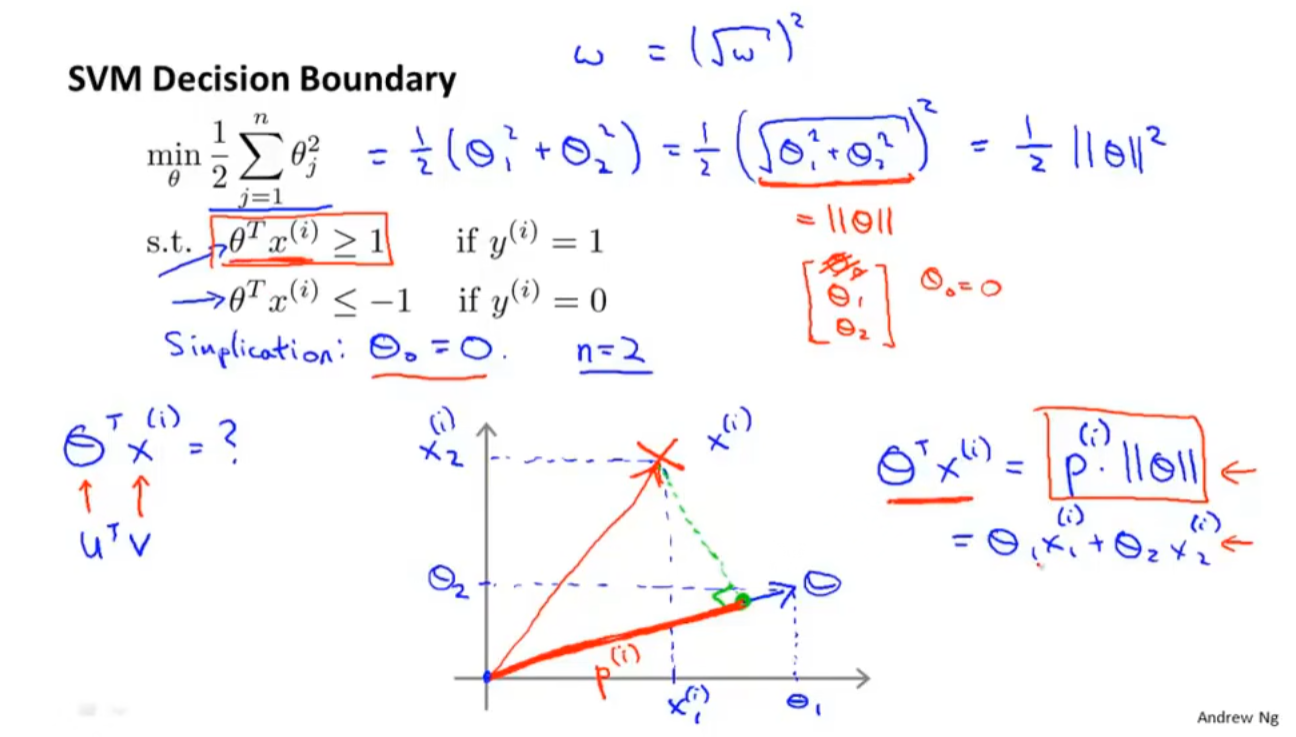 ω = (√ω)²
SVM Decision Boundary
min_θ 1/2 ∑_{j=1}^{n} θ_j² = 1/2 (Θ₁² + Θ₂²) = 1/2 (√(Θ₁² + Θ₂²))² = 1/2 ||Θ||²
= ||Θ||
s.t. θᵀx⁽ⁱ⁾ ≥ 1 if y⁽ⁱ⁾ = 1
θᵀx⁽ⁱ⁾ ≤ −1 if y⁽ⁱ⁾ = 0
[Θ₁ Θ₂] Θ₀ = 0
Simplication: Θ₀ = 0. n = 2
Θᵀx⁽ⁱ⁾ = ?
uᵀv
x₂⁽ⁱ⁾
x⁽ⁱ⁾
Θ₂
Θ
p⁽ⁱ⁾
x₁⁽ⁱ⁾
Θ₁
Θᵀx⁽ⁱ⁾ = p⁽ⁱ⁾ · ||Θ|| ←
= Θ₁x₁⁽ⁱ⁾ + Θ₂x₂⁽ⁱ⁾ ←
Andrew Ng